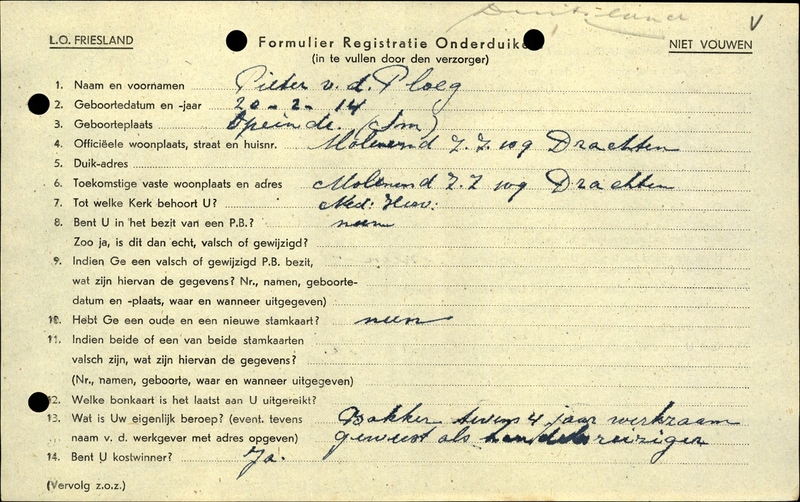 Duitsland
V
L.O. FRIESLAND
Formulier Registratie Onderduike
NIET VOUWEN
(in te vullen door den verzorger)
1. Naam en voornamen Pieter v. d. Ploeg
2. Geboortedatum en -jaar 20-2-14
3. Geboorteplaats Opeinde. (Sm)
4. Officiëele woonplaats, straat en huisnr. Molenend Z.Z 109 Drachten
5. Duik-adres
6. Toekomstige vaste woonplaats en adres Molenend Z.Z 109 Drachten
7. Tot welke Kerk behoort U? Ned: Herv:
8. Bent U in het bezit van een P.B.? neen
Zoo ja, is dit dan echt, valsch of gewijzigd?
9. Indien Ge een valsch of gewijzigd P.B. bezit,
wat zijn hiervan de gegevens? Nr., namen, geboorte-
datum en -plaats, waar en wanneer uitgegeven)
10. Hebt Ge een oude en een nieuwe stamkaart? neen
11. Indien beide of een van beide stamkaarten
valsch zijn, wat zijn hiervan de gegevens?
(Nr., namen, geboorte, waar en wanneer uitgegeven)
12. Welke bonkaart is het laatst aan U uitgereikt?
13. Wat is Uw eigenlijk beroep? (event. tevens Bakker tevens 4 jaar werkzaam
naam v. d. werkgever met adres opgeven) geweest als handelsreiziger
14. Bent U kostwinner? Ja.
(Vervolg z.o.z.)